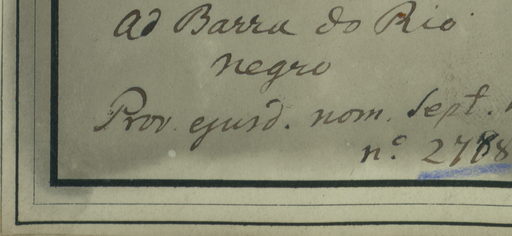 Ad Barra do Rio
negro
Prov. ejusd. nom. Sept.
nº 2788